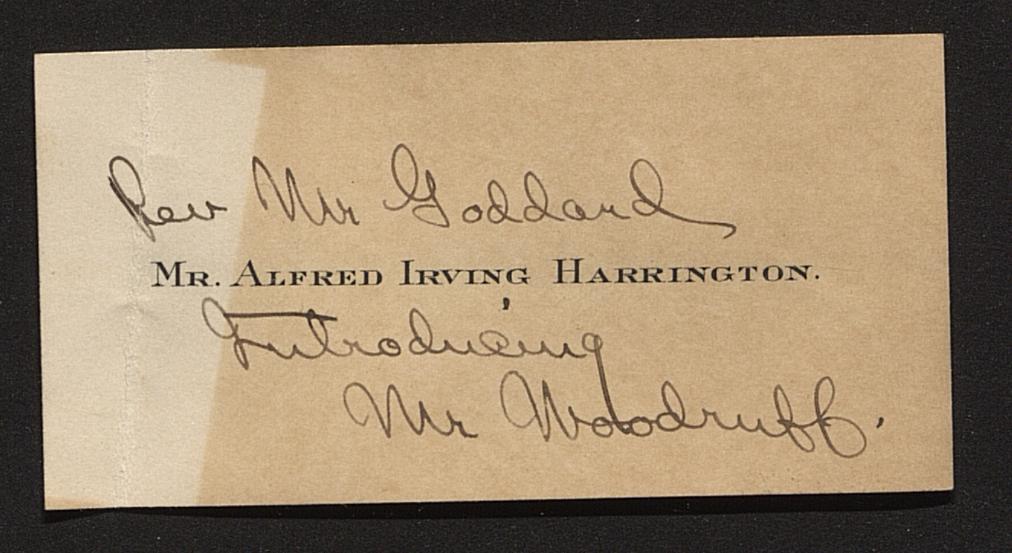 Rev Mr Goddard
MR. ALFRED IRVING HARRINGTON.
Introducing
Mr Woodruff.